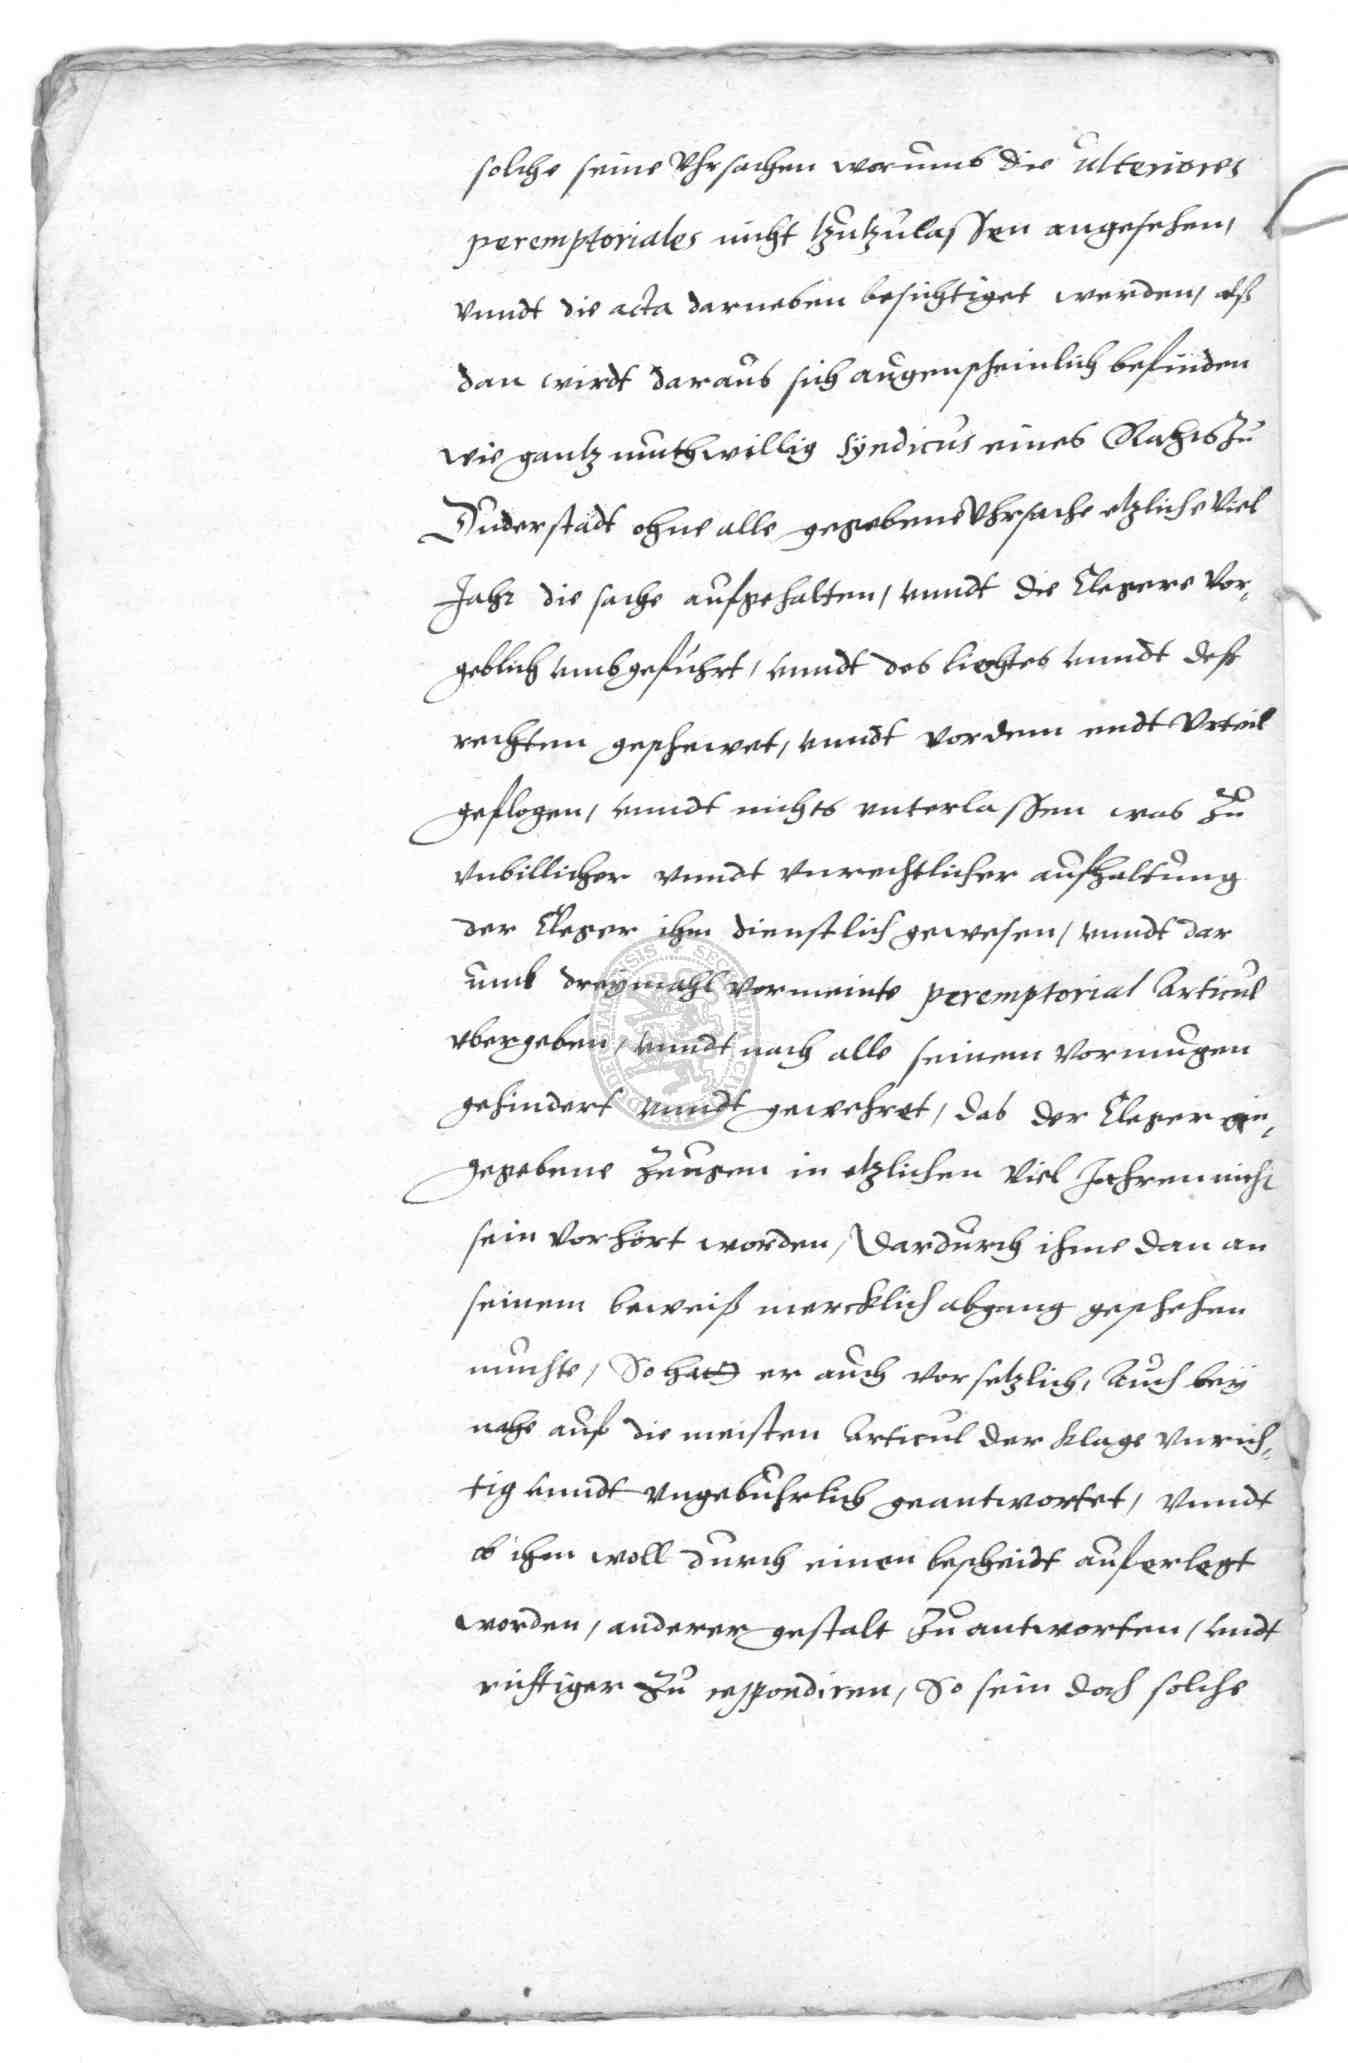 solche seine Vhrsachen worumb die ulteriores
peremptoriales nicht tzutzulassen angesehen,
vnndt die acta darneben besichtiget werden, alß
dan wirdt daraus sich augenscheinlich befinden
wie gantz muthwillig Syndicus eines Rahts zu
Duderstadt ohne alle gegebene Vhrsache etzliche Viel
Jahr die sache aufgehalten, vnndt die Clegere vor„
geblich umbgeführt, vnndt des liechtes vnndt deß
rechten geschewet, vnndt vor dem endt Vrteil
geflogen, vnndt nichts vnterlassen was zu
vnbillicher vnndt vnrechtlicher aufhaltung
der Cleger ihm dienstlich gewesen, vnndt dar
umb dreymahl vormeinte peremptorial Articul
vbergeben, vnndt nach alle seinem vormugen
gehindert vnndt gewehret, das der Cleger ein„
gegebene Zeugen in etzlichen Viel Jahren nicht
sein vorhört worden, Dardurch ihme dan an
seinem beweiß mercklich abgang geschehen
muchte, So hatt er auch vorsetzlich, Auch bey
nahe auf die meisten Articul der klage vnrich„
tig vnndt vngebuhrlich geantwortet, vnndt
ob ihm woll durch einen bescheidt auferlegt
worden, anderer gestalt zu antworten, vndt
richtiger zu respondiren, So sein doch solche